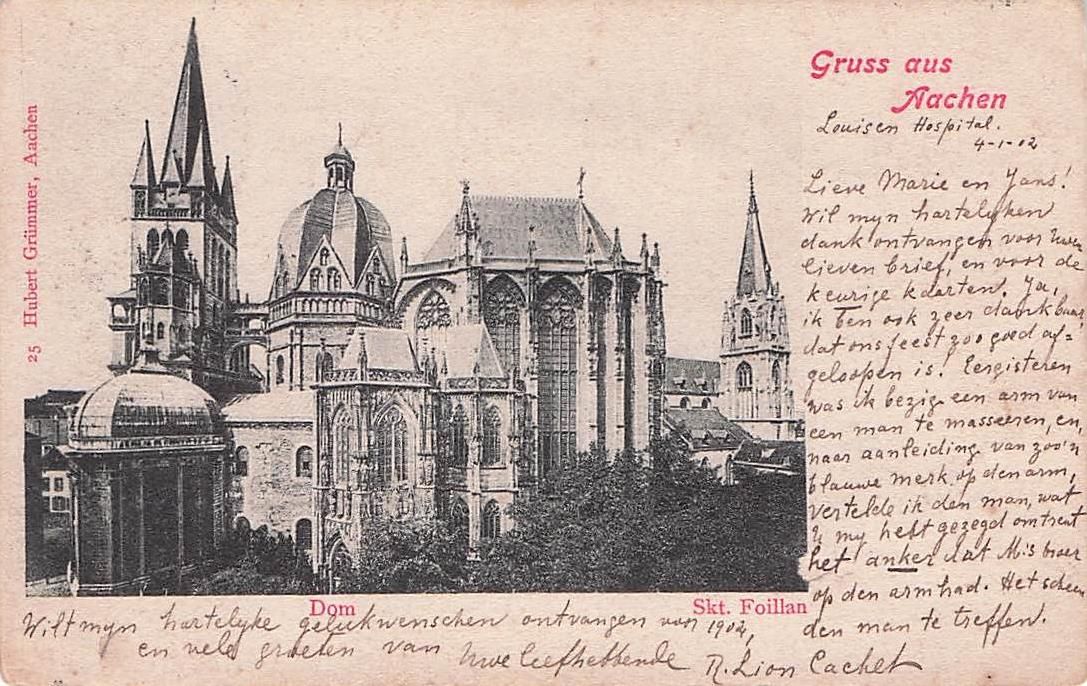 Gruss aus
Aachen
Louisen Hospital.
4-1-02
Lieve Marie en Jans!
Wil myn hartelyken
dank ontvangen voor Uwen
lieven brief, en voor de
keurige kaarten. Ja,
ik ben ook zeer dankbaar
dat ons feest zoo goed af=
geloopen is! Eergisteren
was ik bezig een arm van
een man te masseeren, en,
naar aanleiding van zoo'n
blauwe merk op den arm,
vertelde ik den man, wat
U my hebt gezegd omtrent
het anker dat M's broer
op den arm had. Het scheen
den man te treffen.
25 Hubert Grümmer, Aachen
Dom
Skt. Foillan
Wilt myn hartelyke gelukwenschen ontvangen voor 1902,
en vele groeten van Uwe liefhebbende R. Lion Cachet